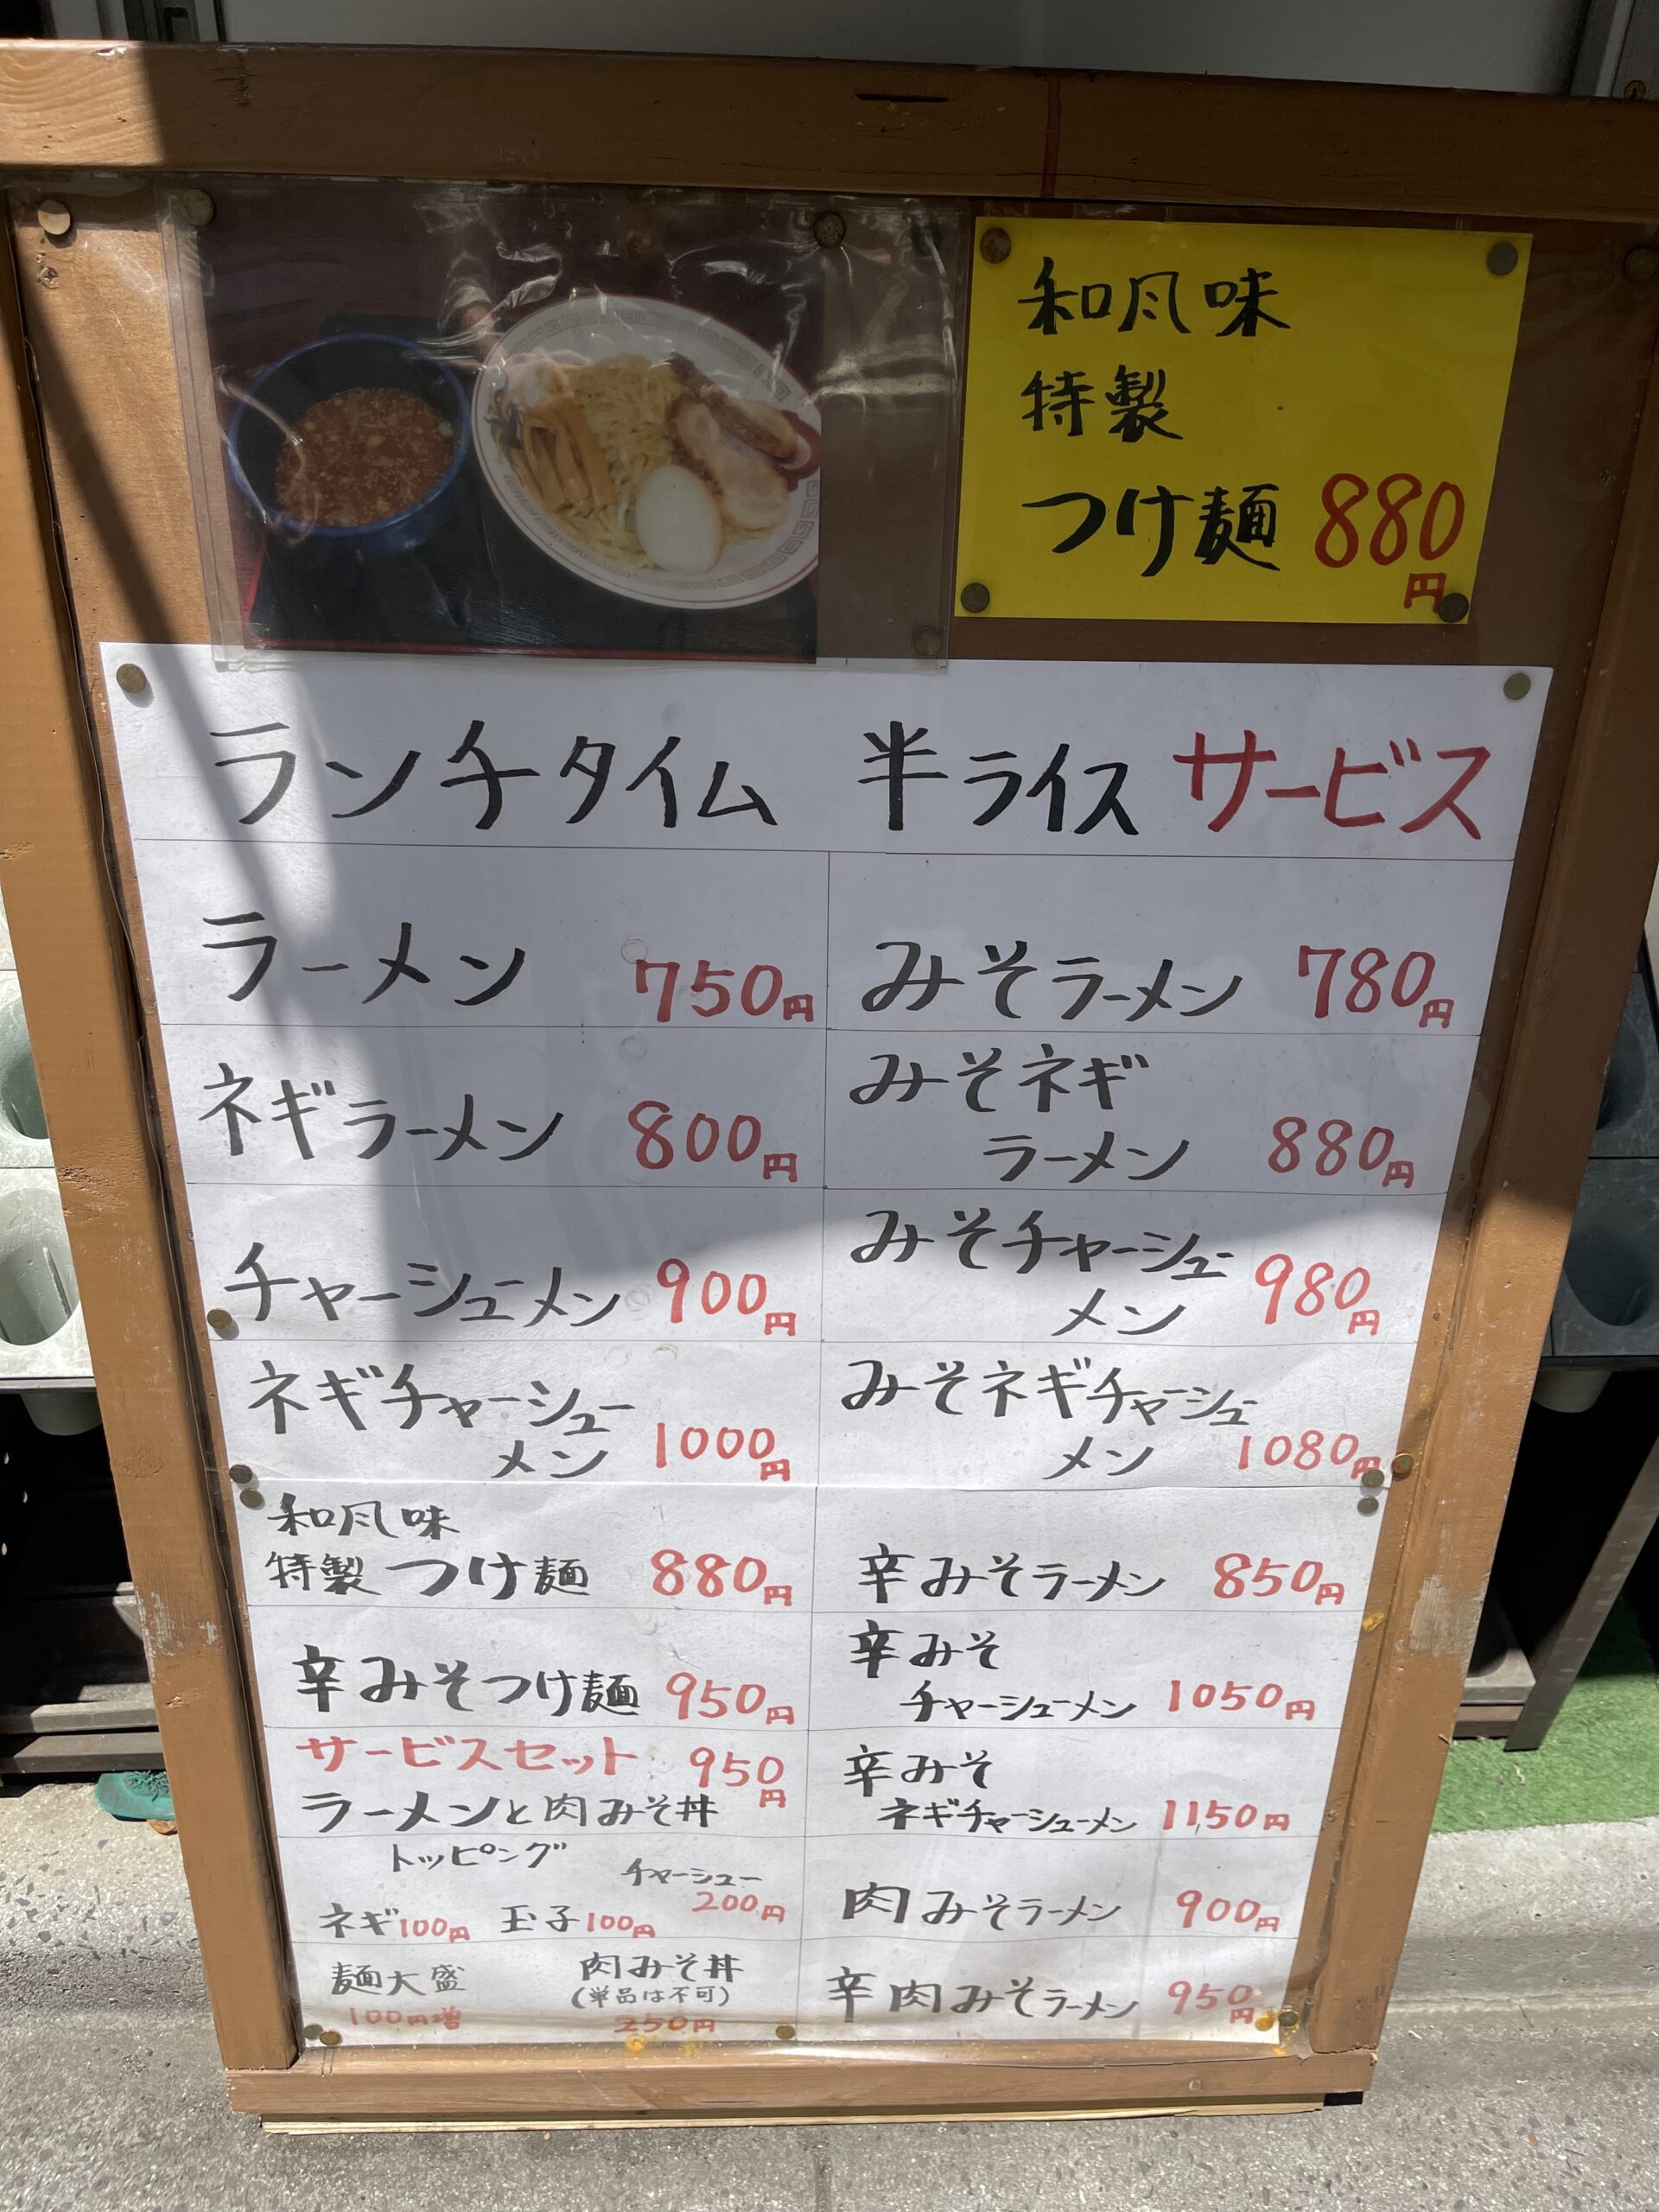 和風味
特製
つけ麺 880
円
ランチタイム 半ライス サービス
ラーメン 750円
みそラーメン 780円
ネギラーメン 800円
みそネギ
ラーメン 880円
チャーシューメン 900円
みそチャーシュー
メン 980円
ネギチャーシュー
メン 1000円
みそネギチャーシュー
メン 1080円
和風味
特製 つけ麺 880円
辛みそラーメン 850円
辛みそつけ麺 950円
辛みそ
チャーシューメン 1050円
サービスセット 950円
ラーメンと肉みそ丼
辛みそ
ネギチャーシューメン 1150円
トッピング
チャーシュー
200円
ネギ100円 玉子100円
肉みそラーメン 900円
麺大盛
100円増
肉みそ丼
(単品は不可)
250円
辛肉みそラーメン 950円